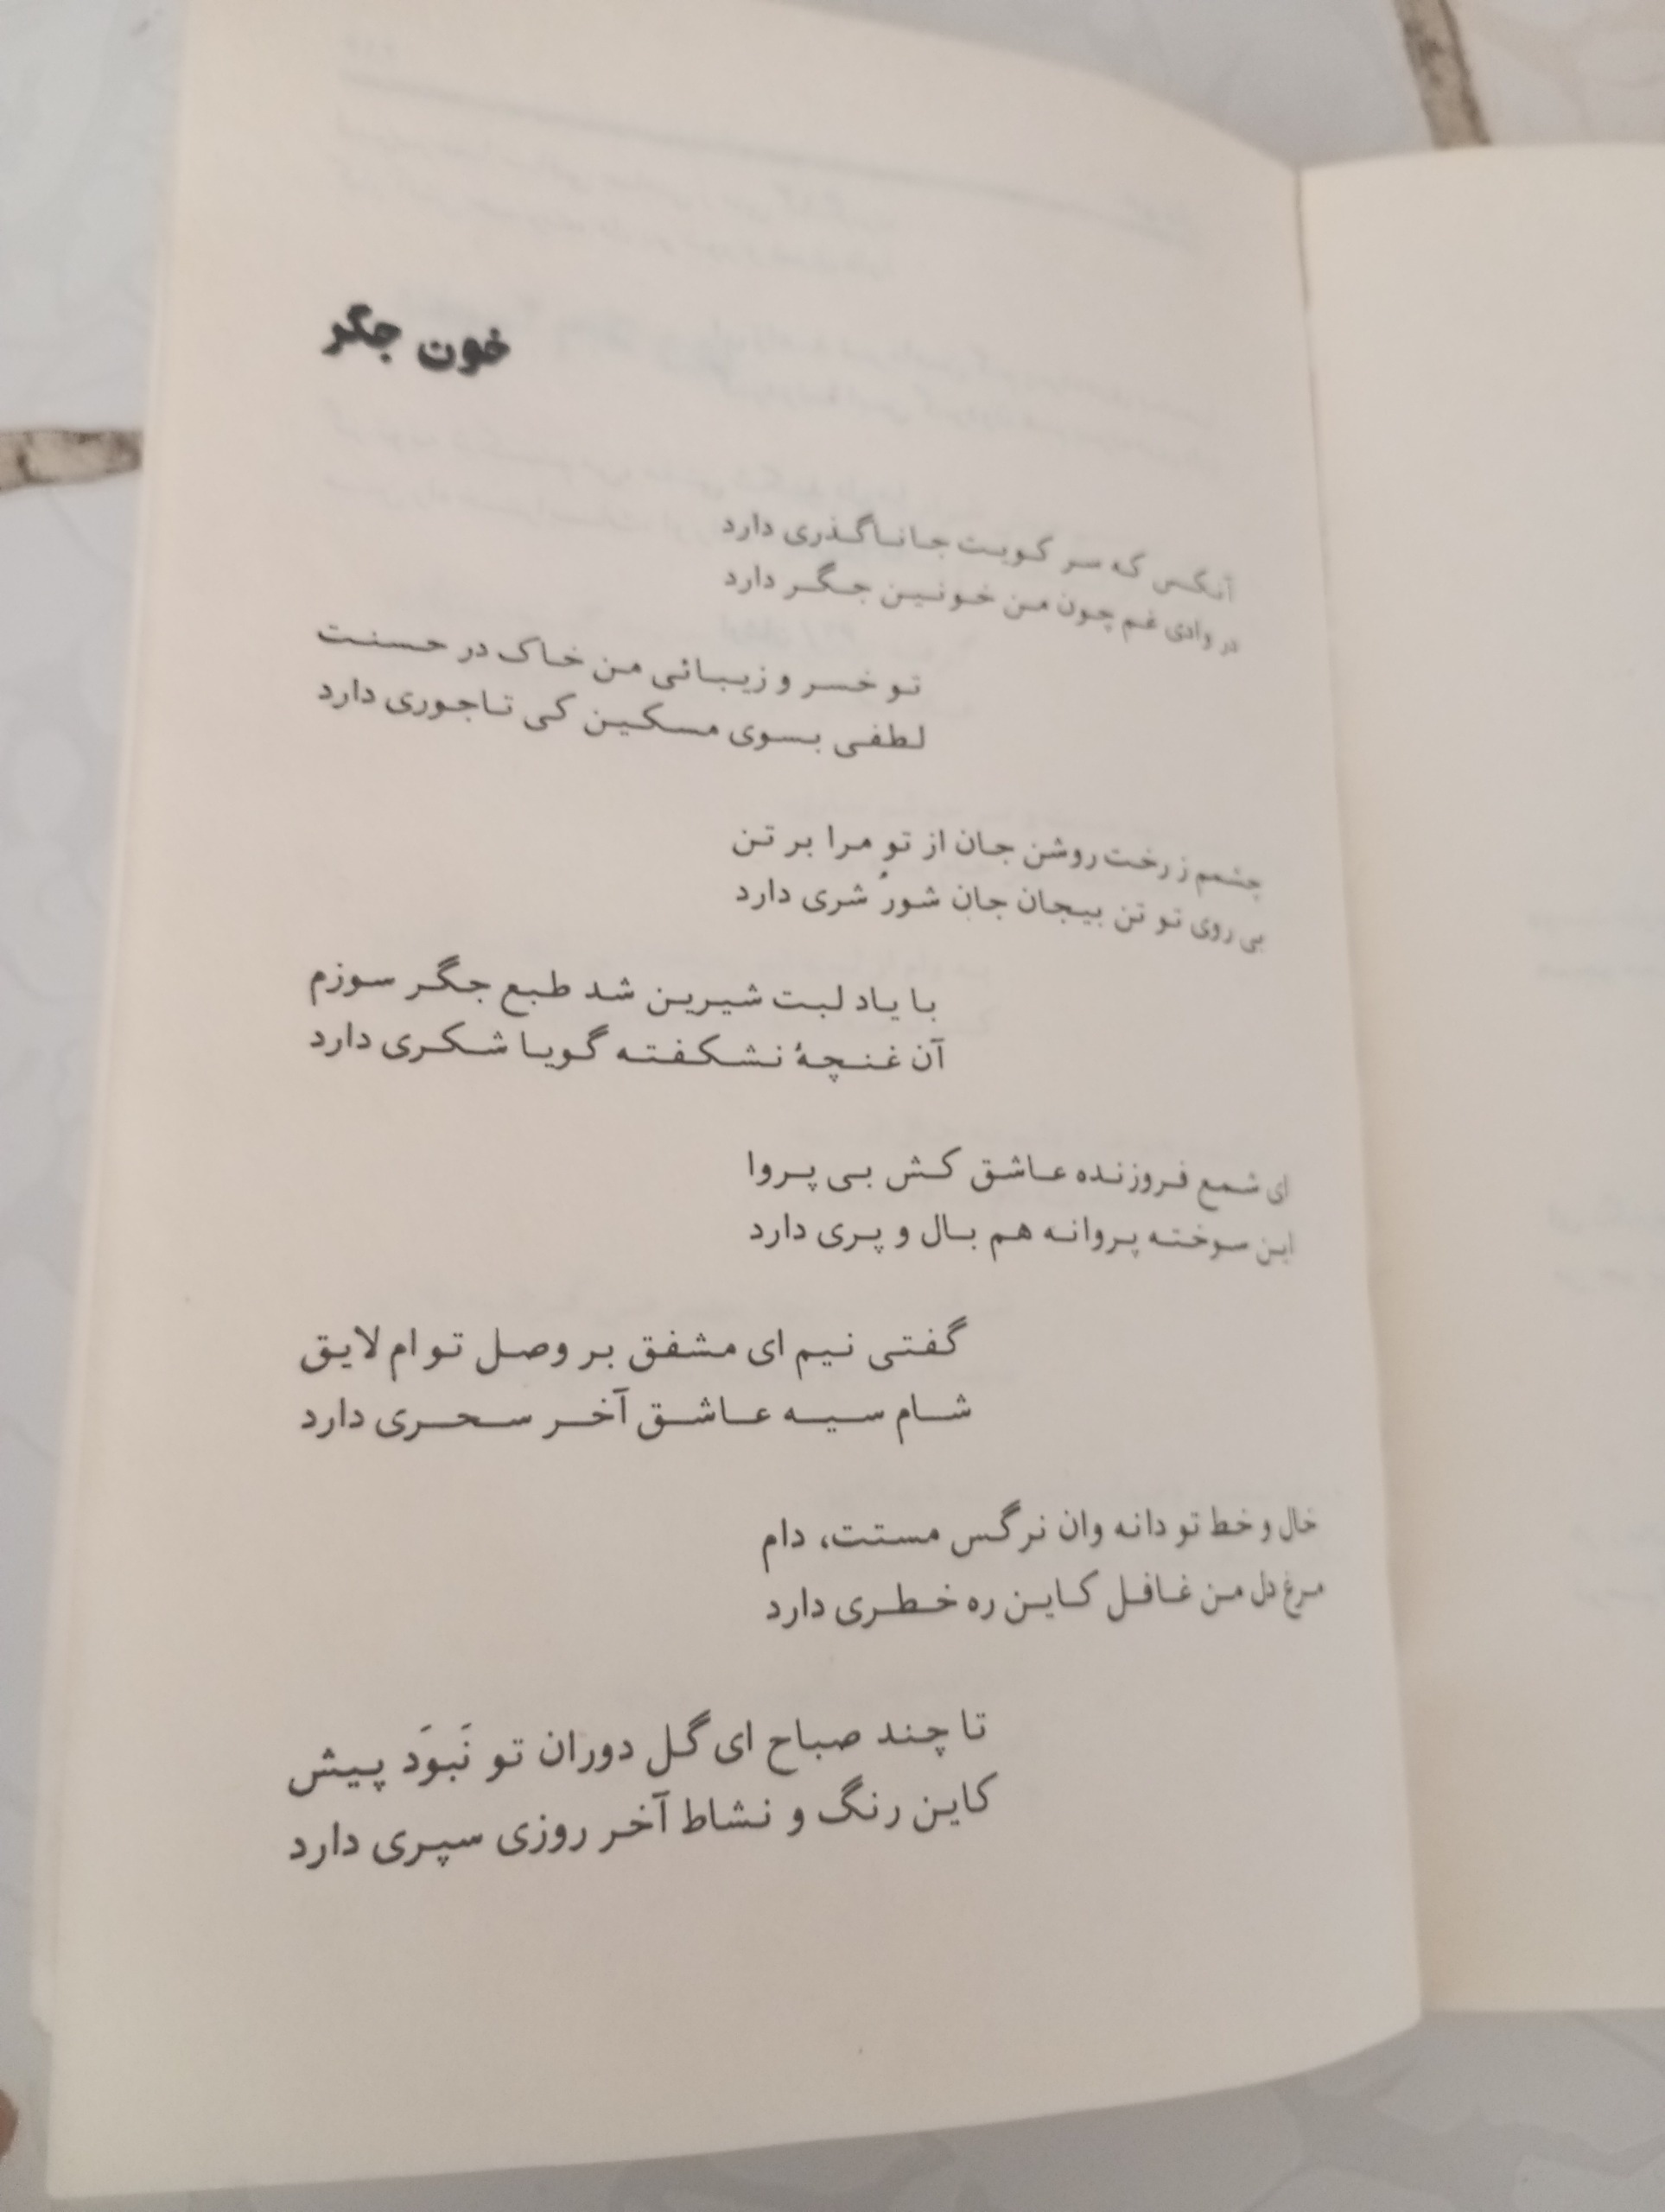 خون جگر
آنکس که سر کویت جاناگذری دارد
در وادی غم چون من خونین جگر دارد
تو خسر و زیبائی من خاک در حسنت
لطفی بسوی مسکین کی تاجوری دارد
چشمم ز رخت روشن جان از تو مرا بر تن
بی روی تو تن بیجان جان شورُ شری دارد
با یاد لبت شیرین شد طبع جگر سوزم
آن غنچهٔ نشکفته گویا شکری دارد
ای شمع فروزنده عاشق کش بی پروا
این سوخته پروانه هم بال و پری دارد
گفتی نیم ای مشفق بر وصل تو ام لایق
شام سیه عاشق آخر سحری دارد
خال و خط تو دانه وان نرگس مستت، دام
مرغ دل من غافل کاین ره خطری دارد
تا چند صباح ای گل دوران تو نَبوَد پیش
کاین رنگ و نشاط آخر روزی سپری دارد